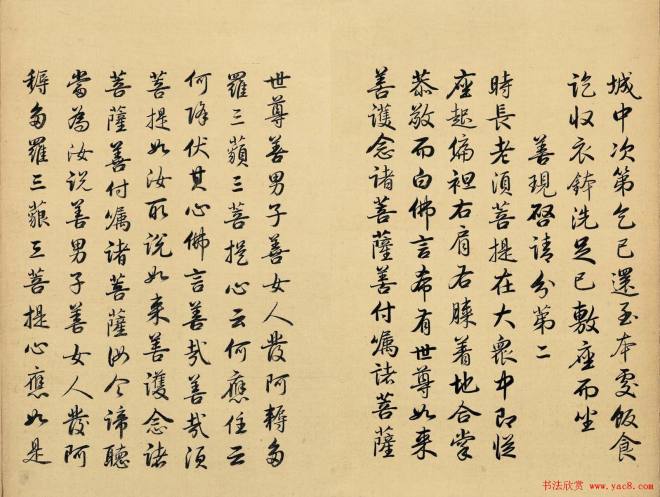 城中次第乞已還至本處飯食
訖收衣鉢洗足已敷座而坐
善現啓請分第二
時長老須菩提在大衆中即從
座起偏袒右肩右膝着地合掌
恭敬而白佛言希有世尊如来
善護念諸菩薩善付囑諸菩薩
世尊善男子善女人發阿耨多
羅三藐三菩提心云何應住云
何降伏其心佛言善哉善哉須
菩提如汝所說如来善護念諸
菩薩善付囑諸菩薩汝今諦聽
當為汝說善男子善女人發阿
耨多羅三藐三菩提心應如是
书法欣赏 www.yac8.com